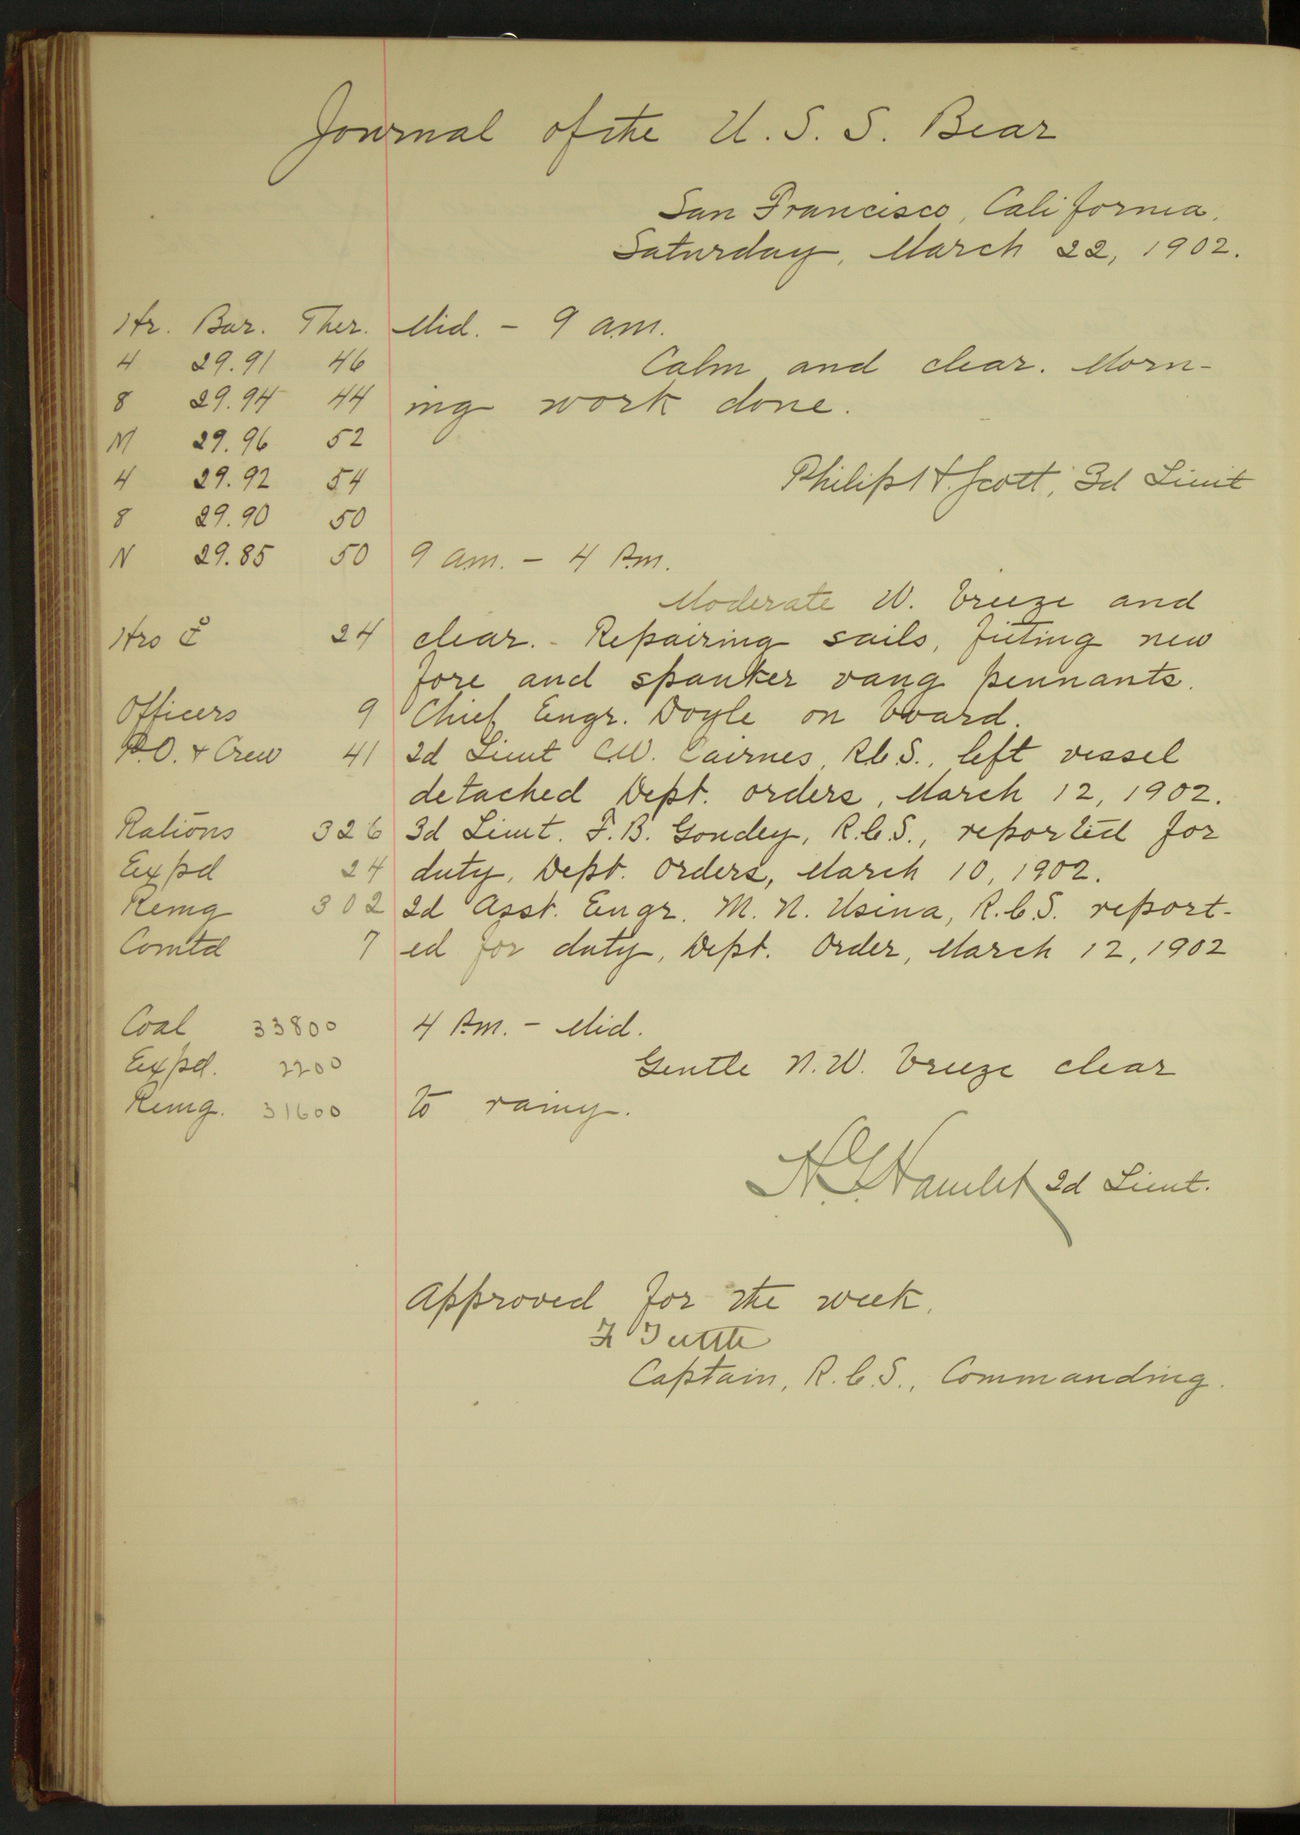 Journal of the U. S. S. Bear
San Francisco, California.
Saturday, March 22, 1902.
Hr. Bar. Ther.
4 29.91 46
8 29.94 44
M 29.96 52
4 29.92 54
8 29.90 50
N 29.85 50
Hrs 24
Officers 9
P.O. & Crew 41
Rations 326
Expd 24
Remg 302
Comtd 7
Coal 33800
Expd. 2200
Remg. 31600
Mid. - 9 a.m.
Calm and clear. Morn-
ing work done.
Philip H. Scott, 3d Lieut
9 a.m. - 4 P.m.
Moderate W. breeze and
clear. - Repairing sails, fitting new
fore and spanker vang pennants.
Chief Engr. Doyle on board.
2d Lieut C.W. Cairnes, R.C.S., left vessel
detached Dept. orders, March 12, 1902.
3d Lieut. F. B. Goudey, R.C.S., reported for
duty, Dept. orders, March 10, 1902.
2d Asst. Engr. M. N. Usina, R.C.S. report-
ed for duty, Dept. Order, March 12, 1902
4 P.m. - Mid.
Gentle N.W. breeze clear
to rainy.
H G Hamlet 2d Lieut.
Approved for the week.
F Tuttle
Captain, R.C.S., Commanding.